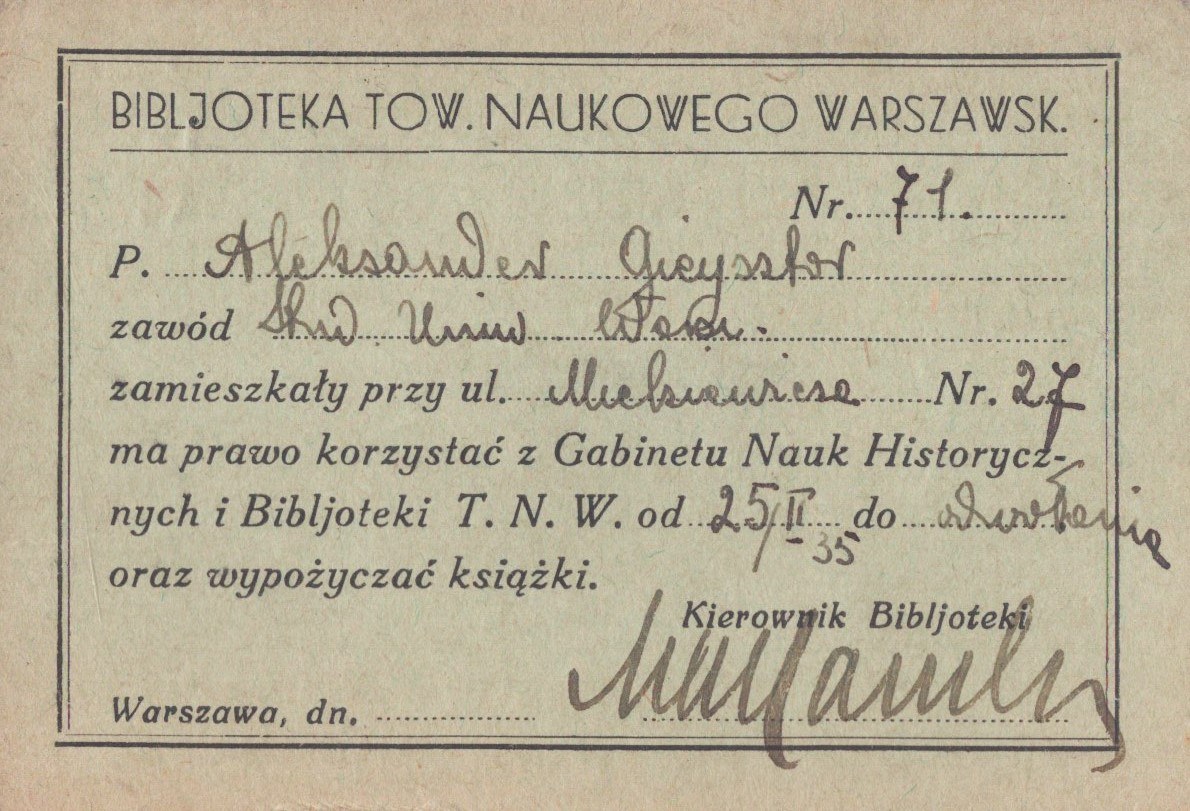 BIBLJOTEKA TOW. NAUKOWEGO WARSZAWSK.
Nr. 71.
P. Aleksander Gieysztor
zawód Stud Uniw.
zamieszkały przy ul. Mickiewicza Nr. 27
ma prawo korzystać z Gabinetu Nauk Historycz-
nych i Bibljoteki T. N. W. od 25/II 35 do odwołania
oraz wypożyczać książki.
Kierownik Bibljoteki
Warszawa, dn.